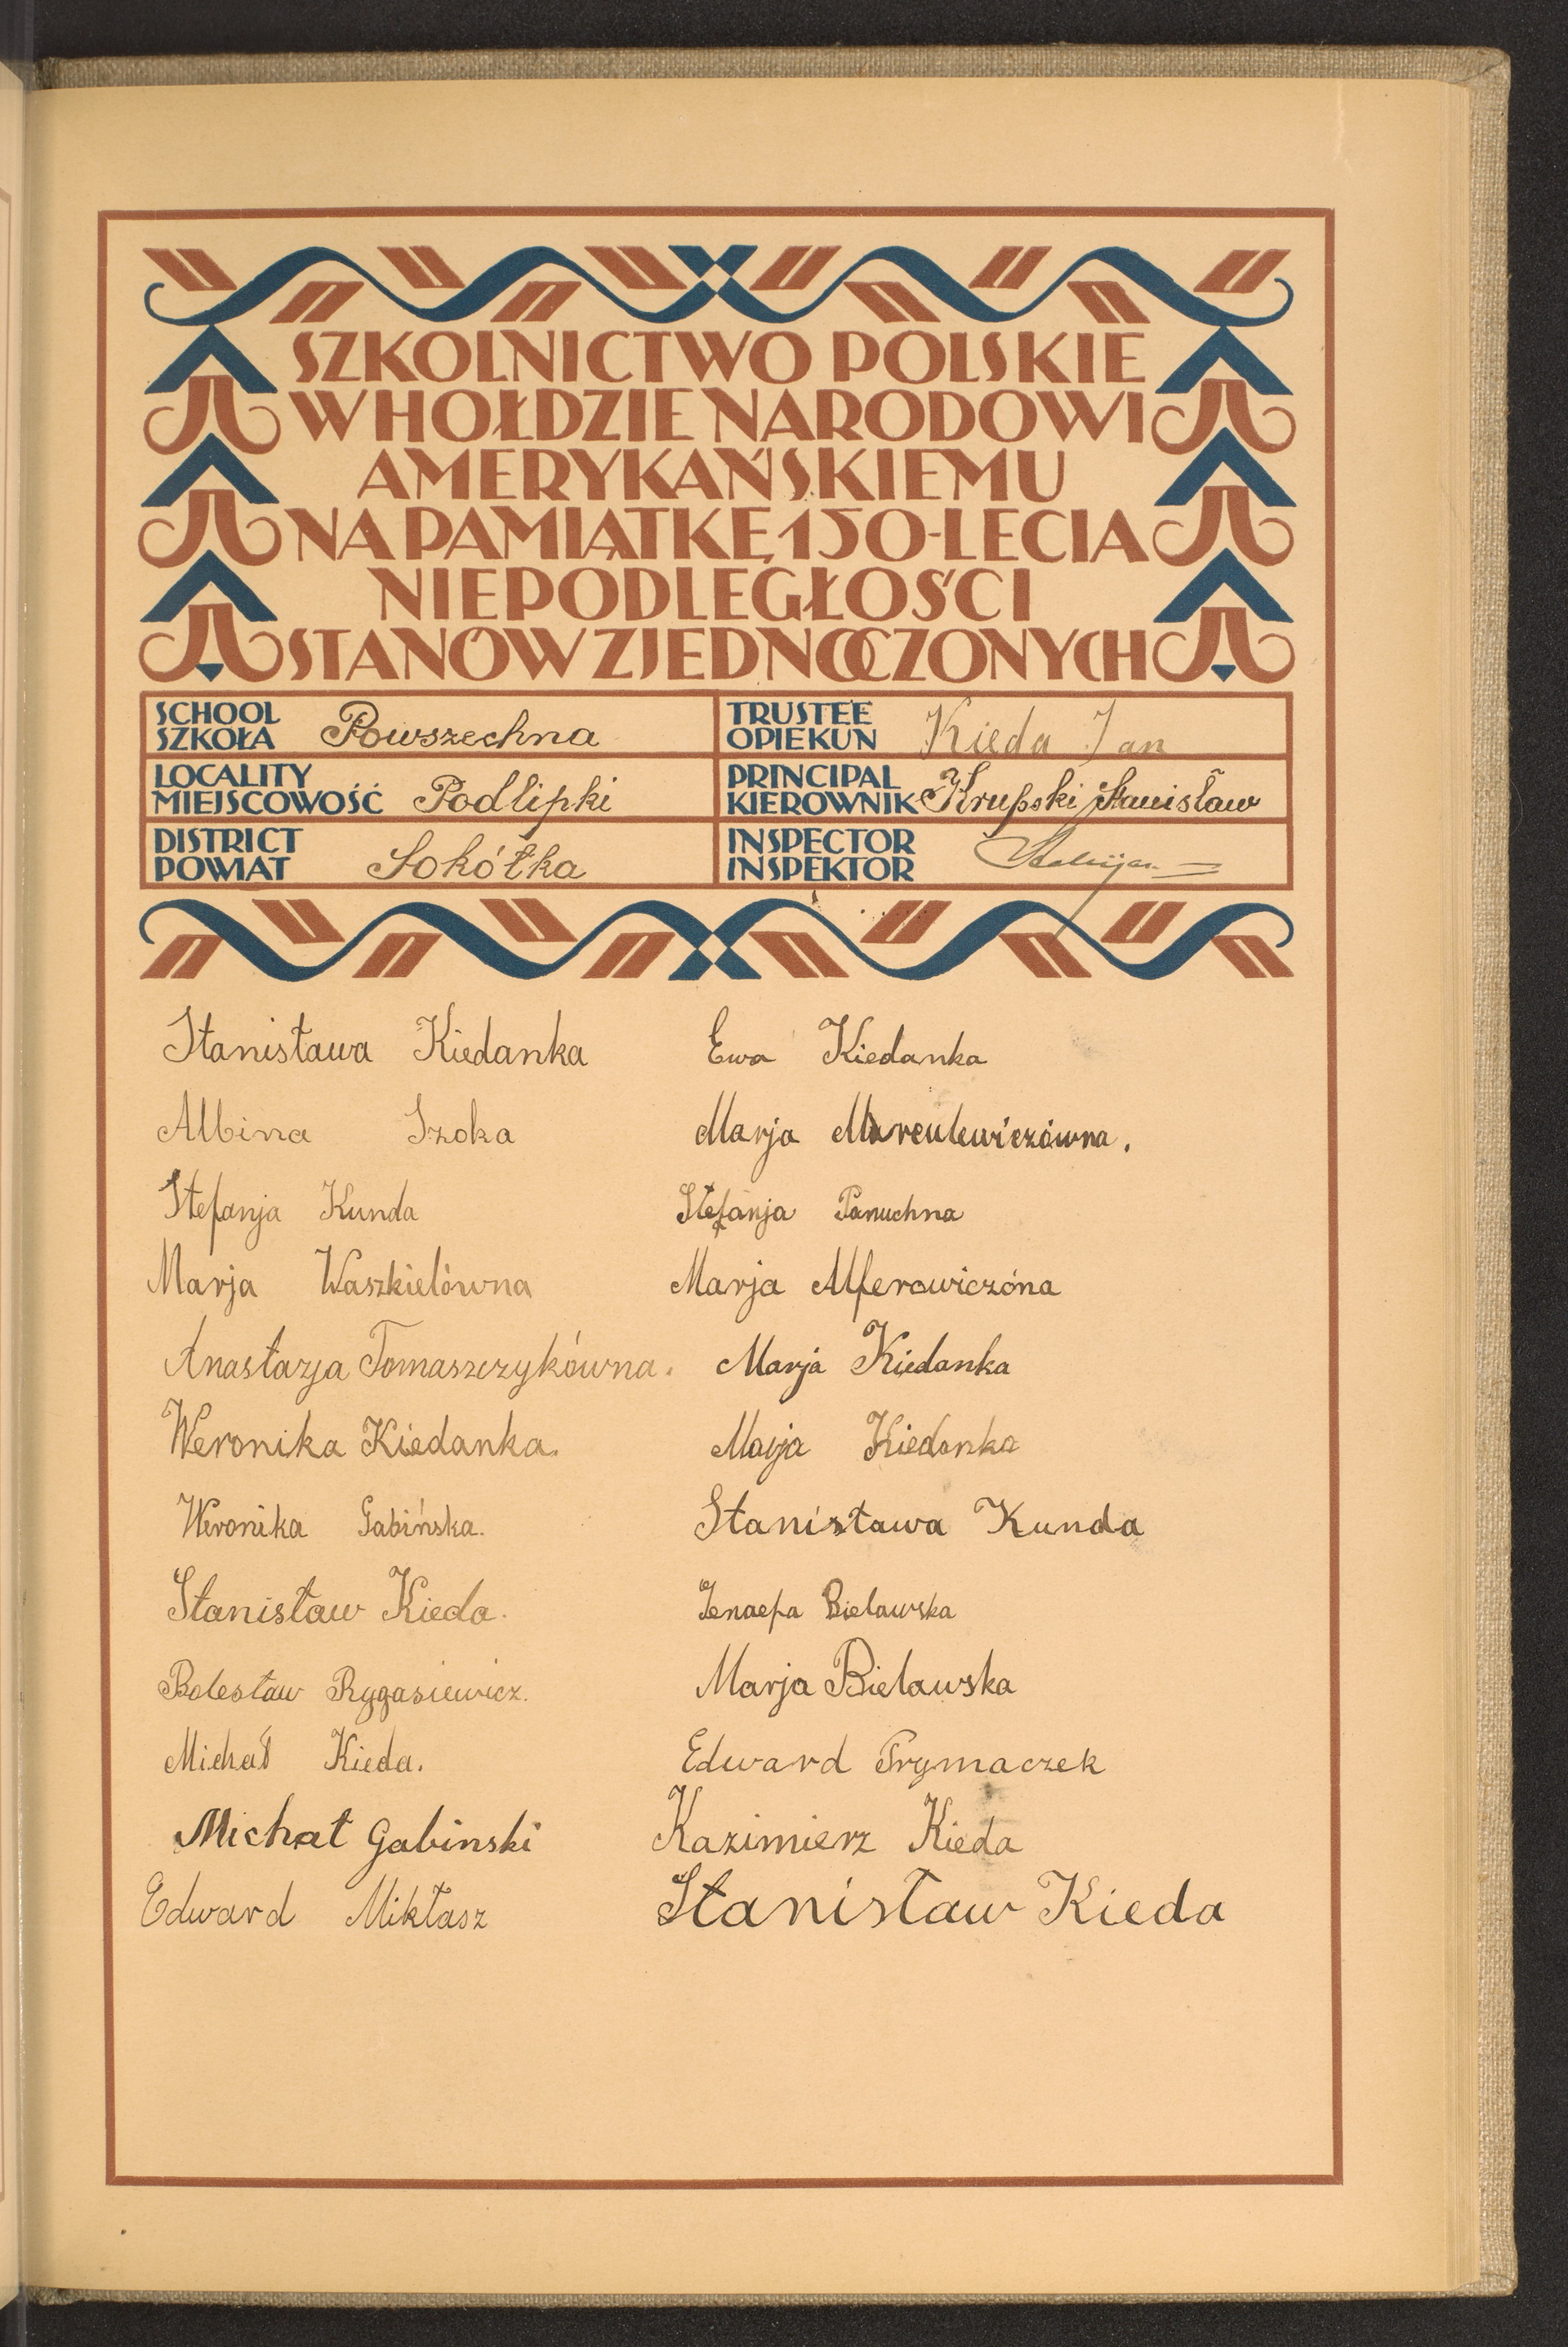 SZKOLNICTWO POLSKIE
W HOŁDZIE NARODOWI
AMERYKAŃSKIEMU
NA PAMIĄTKĘ 150-LECIA
NIEPODLEGŁOŚCI
STANÓW ZJEDNOCZONYCH
SCHOOL
SZKOŁA Powszechna
TRUSTEE
OPIEKUN Kieda Jan
LOCALITY
MIEJSCOWOŚĆ Podlipki
PRINCIPAL
KIEROWNIK Krupski Stanisław
DISTRICT
POWIAT Sokółka
INSPECTOR
INSPEKTOR
Stanisława Kiedanka
Albina Szoka
Stefanja Kunda
Marja Waszkielówna
Anastazja Tomaszczykówna.
Weronika Kiedanka.
Weronika Gabińska.
Stanisław Kieda.
Bolesław Rygasiewicz.
Michał Kieda.
Michał Gabinski
Edward Mikłasz
Ewa Kiedanka
Marja Marculewiczówna.
Stefanja Panuchna
Marja Alferowiczóna
Marja Kiedanka
Marja Kiedanka
Stanisława Kunda
Bielawska
Marja Bielawska
Edward Trymaczek
Kazimierz Kieda
Stanisław Kieda